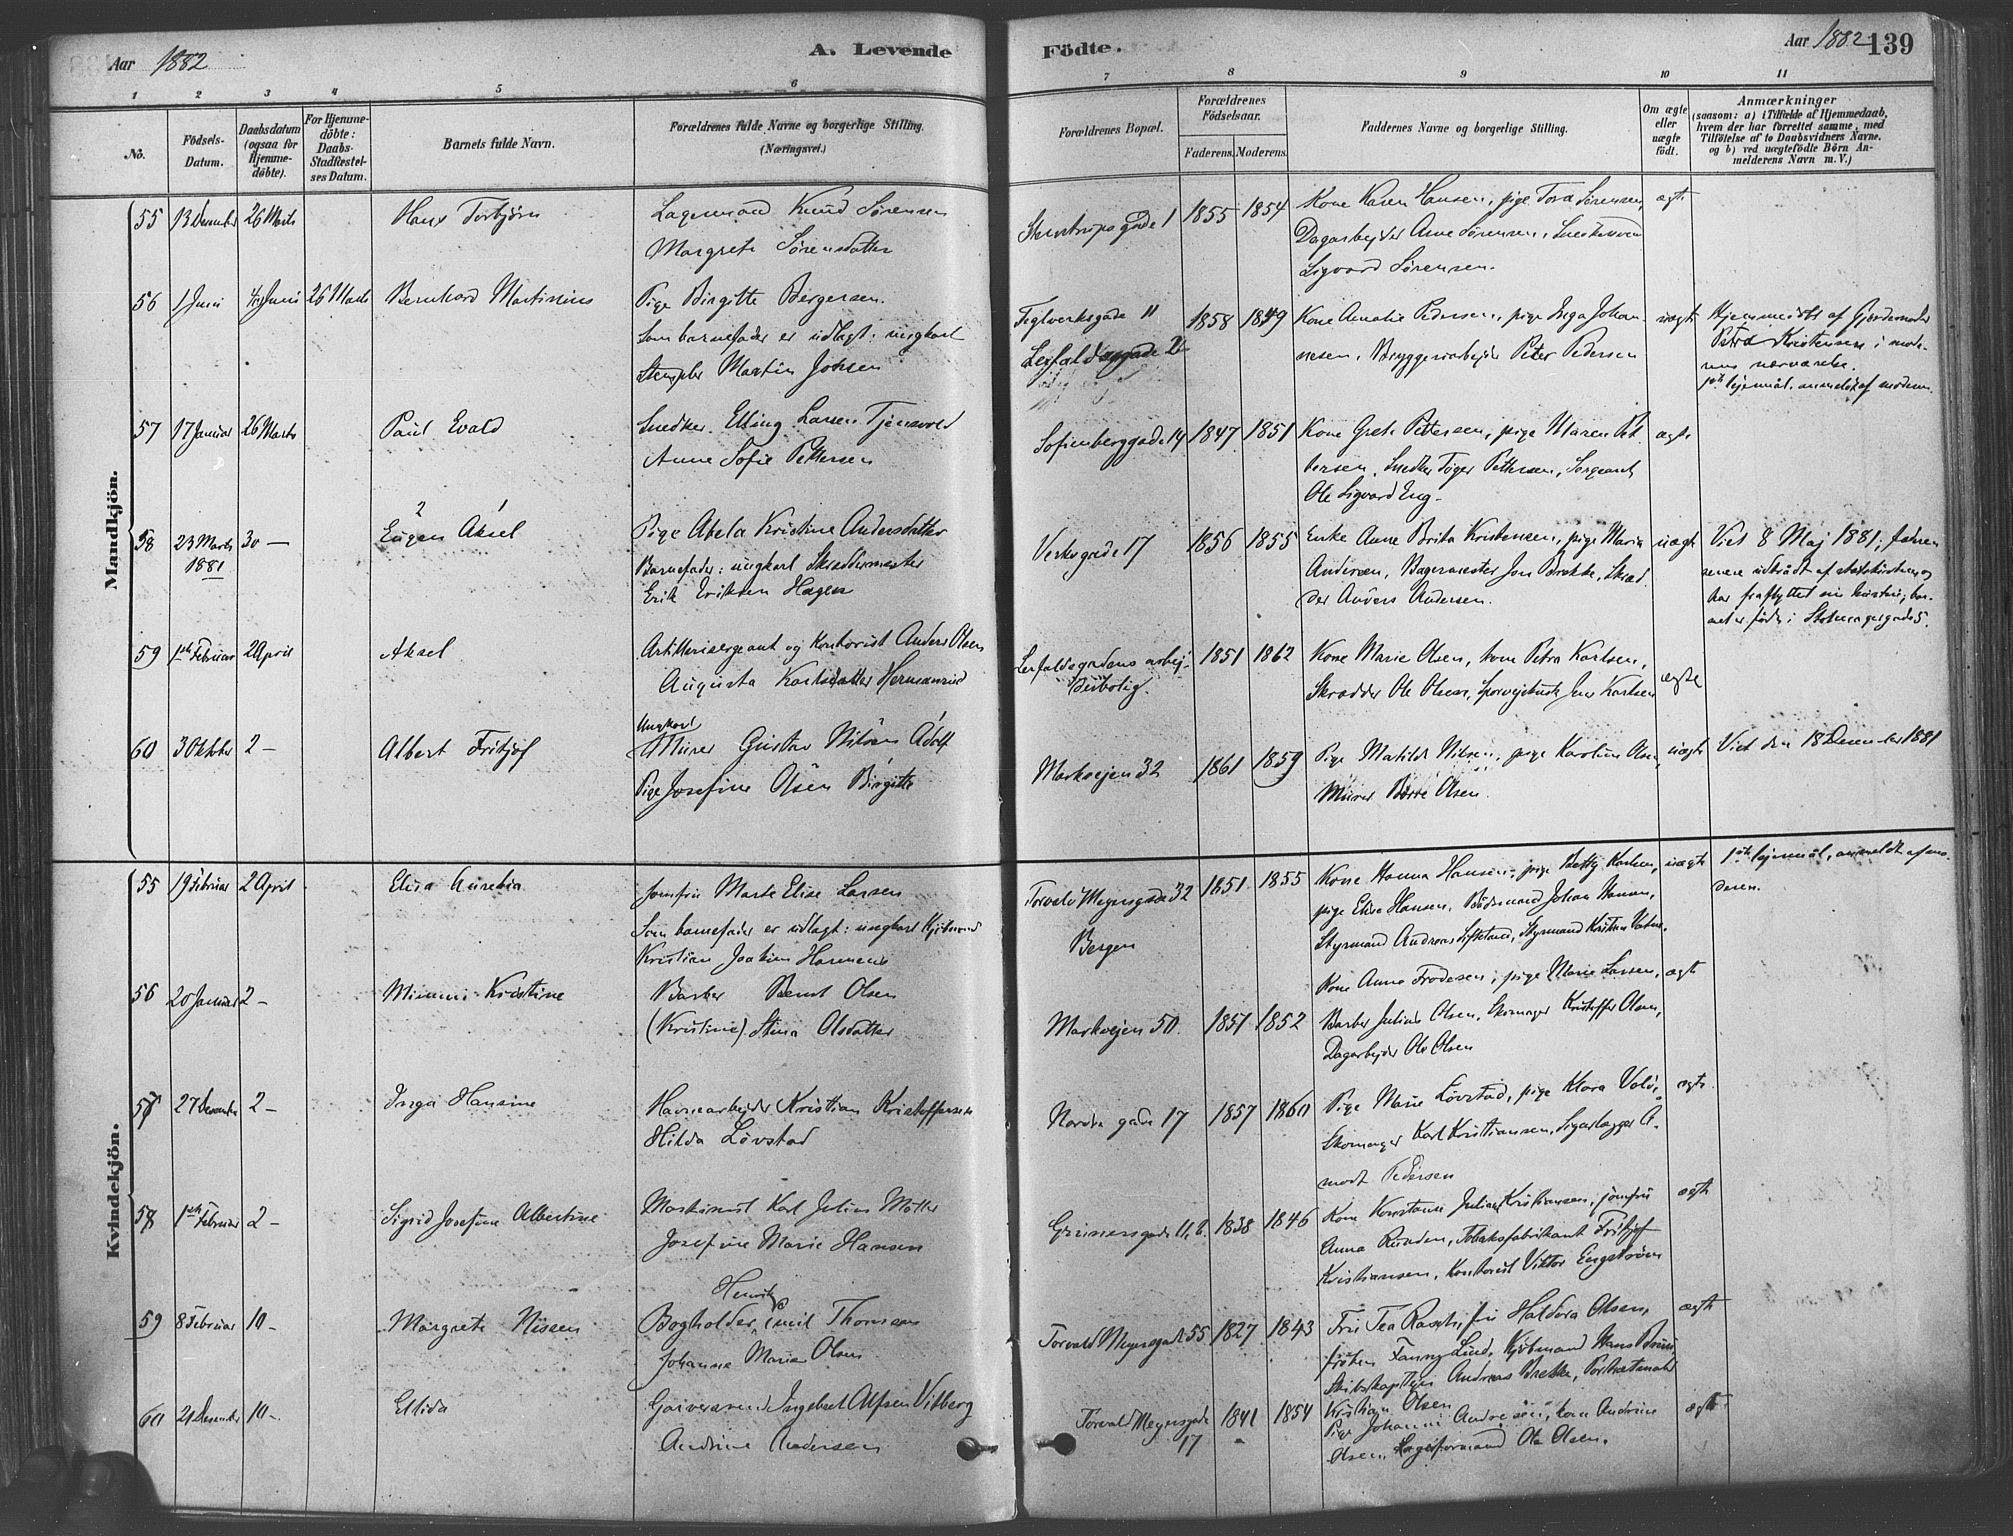 Aar 1882
A. Levende
Födte.
Aar 1882
139
1 2 3 4 5 6 7 8 9 10 11
No.
Födsels-Datum.
Daabsdatum (ogsaa for Hjemme-döbte).
For Hjemme-döbte: Daabs-Stadfæstel-ses Datum.
Barnets fulde Navn.
Forældrenes fulde Navne og borgerlige Stilling.
(Næringsvei.)
Forældrenes Bopæl.
Forældrenes Födselsaar.
Faderens. Moderens.
Faddernes Navne og borgerlige Stilling.
Om ægte eller uægte födt.
Anmærkninger
(saasom: a) i Tilfælde af Hjemmedaab, hvem der har forrettet samme, med Tilföielse af to Daabsvidners Navne. og b) ved uægtefödte Börn Anmelderens Navn m. V.)
Mandkjön.
55 13 December 26 Marts Hans Torbjörn
Lagermand Knud Sörensen
Margrete Sörensdatter
1 1855 1854
Kone Karen Hansen, pige Tora Sörensen, ægte
Dagarbejder Arne Sörensen,
Sigvard Sörensen.
56 1 Juni Juni 26 Marts Bernhard Martinius
Pige Birgitte Bergersen.
Som barnefader er udlagt: ungkarl
Stempler Martin Johsen
Teglverksgade 11
1858 1859
Kone Amalie Pedersen, pige Inga Johan-
nesen, Bryggeriarbejder Peter Pedersen
uægte
Hjemmedöbt af Gjordemoder
Petra Kristensen i mode-
rens nærværelse.
1ste lejermål, anmeldt af moderen.
57 17 Januar 26 Marts Paul Evald
Snedker Elling Larsen
Anne Sofie Pettersen
Sofienberggade 14 1847 1851
Kone Grete Pettersen, pige Maren Pet-
tersen, Snedker Pettersen, Sergeant
Ole Sigvard Eng.
ægte
2 1
58 23 Marts 1881 30 — Eugen Aksel
Pige Abela Kristine Andersdatter
Barnefader: ungkarl Skreddermester
Erik Eriksen Hagen
Verksgade 17 1856 1855
Enke Anne Brita Kristensen, pige Maria
Andersen, Bagermester Jon Brekke, Skræd
der Anders Andersen.
uægte
Viet 8 Maj 1881; faderen
senere udtrådt af statskirken og
har fraflyttet sin hustru; bar-
net er födt i
59 1ste Februar 2 April Aksel
Artillerisergeant og Kontorist Anders Olsen
Augusta Karlsdatter Hermansrud
1851 1862
Kone Marie Olsen, kone Petra Karlsen,
Skrædder Ole Olsen, Jens Karlsen
ægte
60 3 Oktober 2 — Albert Fritjof
Ungkarl
Murer Gustav Nilsen Adolf
Pige Josefine Olsen Birgitte
Markvejen 32 1861 1859
Pige Matilde Nilsen, pige Karoline Olsen,
Murer Olsen.
uægte
Viet den 18 December 1881
Kvindekjön.
55 19 Februar 2 April Elisa Aurelia
Jomfru Marte Elise Larsen
Som barnefader er udlagt: ungkarl Kjöbmand
Kristian Joakim
Torvald Meyersgade 32
Bergen
1851 1855
Kone Hanna Hansen, pige Betty Karlsen,
pige Elise Hansen, Johan Hansen,
Styrmand Andreas Styrmand Kristen
uægte
1ste lejermål, anmeldt af mo-
deren.
56 20 Januar 2 — Mimmi Kristine
Barber Bernt Olsen
(Kristine) Stina Olsdatter
Markvejen 50. 1857 1852
Kone Anna Frodesen, pige Marie Larsen,
Barber Julius Olsen, Skomager Kristoffer Olsen,
Dagarbejder Ole Olsen
ægte
57 27 December 2 — Inga Hansine
Havnearbejder Kristian Kristoffersen
Hilda Lövstad
Nordre gade 17 1857 1860
Pige Marie Lövstad, pige Klara
Skomager Karl Kristiansen, A-
modt Pedersen
ægte
58 1ste Februar 2 — Sigrid Josefine Albertine
Maskinist Karl Julius Möller
Josefine Marie Hansen
Grünersgade 11, b. 1838 1846
Kone Konstanse Juliane Kristiansen, jomfru
Anna Tobaksfabrikant Fritjof
Kristiansen, Kontorist Viktor Engström
ægte
59 8 Februar 10 — Margrete Nissen
Henrik
Bogholder Emil Thomsen
Johanne Marie Olsen
Torvald Meyersgade 55 1827 1843
Fru Tea Rasch, fru Haldora Olsen,
fröken Fanny Lind, Kjöbmand Hans
Skibskaptejn Andreas Brekke, Portrætmaler
Kristian Olsen
ægte
60 21 December 10 — Ellida
Garversvend Ingebret Alfsen Vitberg
Andrine Andersen
Torvald Meyersgade
17
1841 1854
Pige Johanne Andresen, kone Andrine
Olsen, Lagerformand Ole Olsen.
ægte